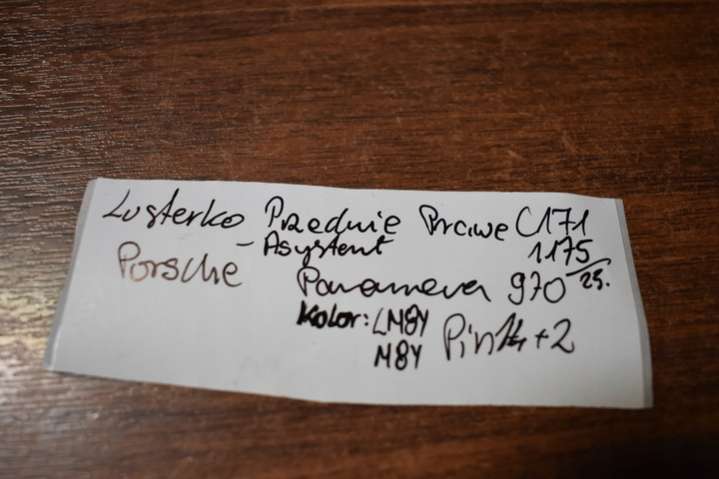 Lusterko Przednie Prawe C171
- Asystent 1175/25.
Porsche Panamera 970
Kolor: LM8Y
M8Y Pin 14+2